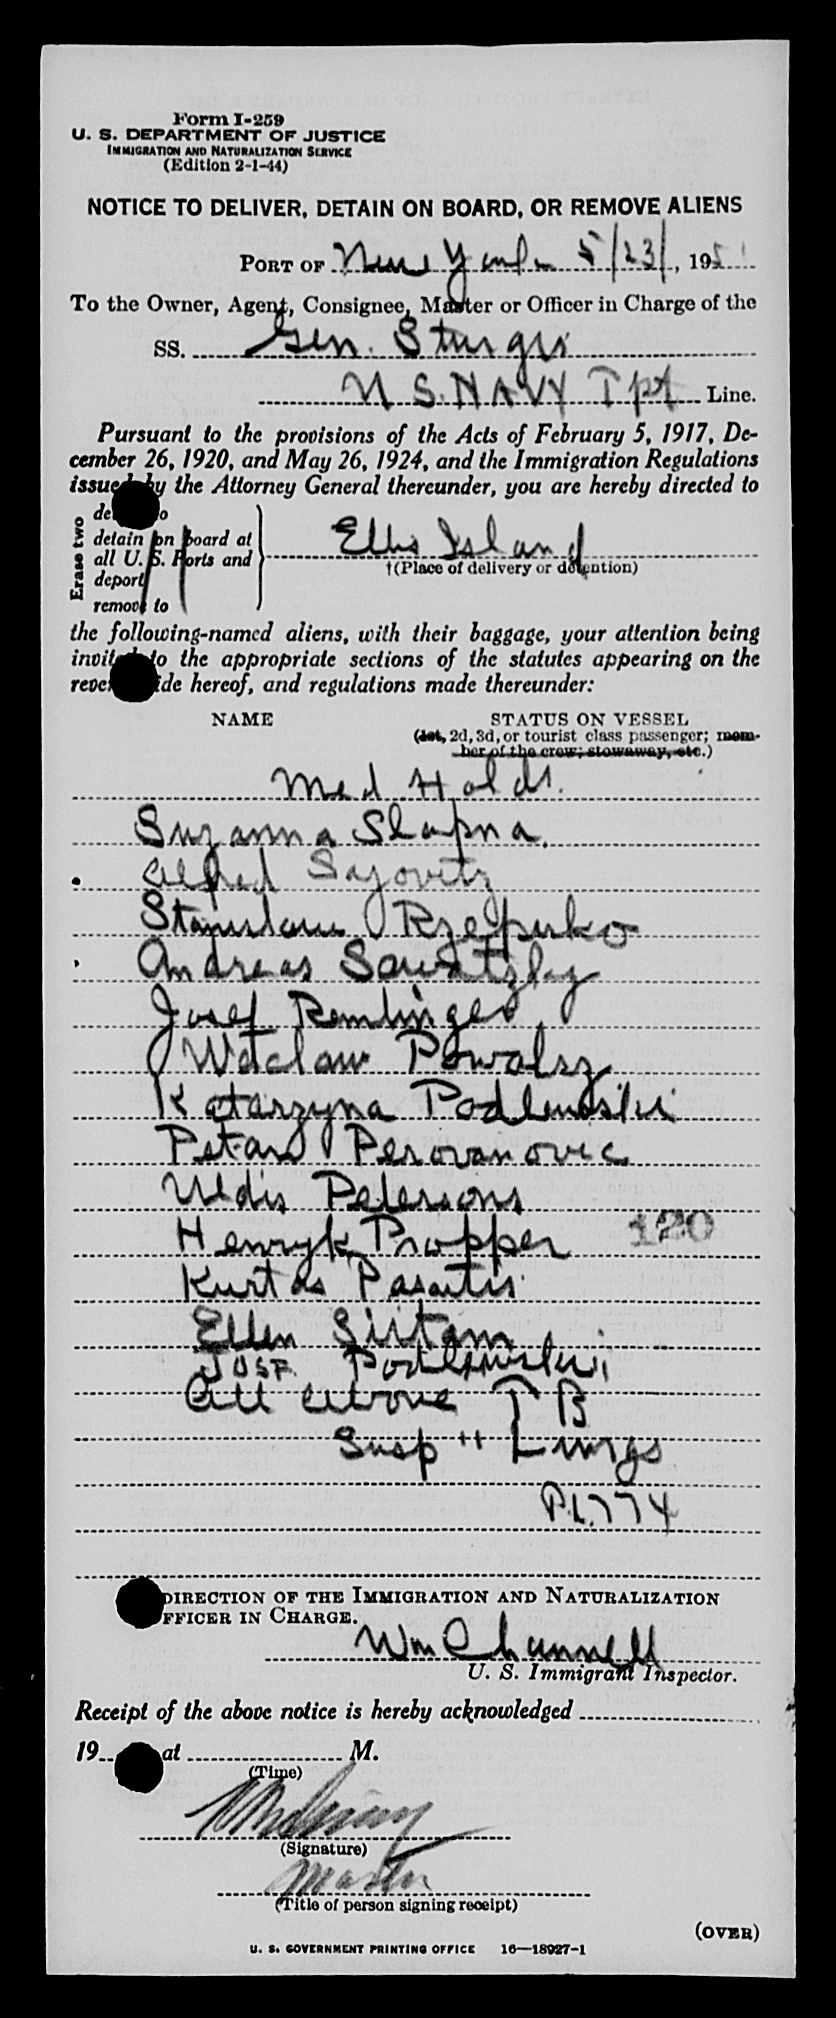 Form I-259
U. S. DEPARTMENT OF JUSTICE
IMMIGRATION AND NATURALIZATION SERVICE
(Edition 2-1-44)
NOTICE TO DELIVER, DETAIN ON BOARD, OR REMOVE ALIENS
PORT OF New York 5/23/, 195
To the Owner, Agent, Consignee, Master or Officer in Charge of the
SS. Gen. Sturgis
U S. NAVY Tpt Line.
Pursuant to the provisions of the Acts of February 5, 1917, De-
cember 26, 1920, and May 26, 1924, and the Immigration Regulations
issued by the Attorney General thereunder, you are hereby directed to
Erase two
de o
detain on board at
all U. S. Ports and
deport
remove to
Ellis Island
†(Place of delivery or detention)
the following-named aliens, with their baggage, your attention being
invited to the appropriate sections of the statutes appearing on the
reve ide hereof, and regulations made thereunder:
NAME STATUS ON VESSEL
(1st, 2d, 3d, or tourist class passenger; mem-
ber of the crew; stowaway, etc.)
Med Holds.
Suzanna Slapna.
Alfred Sajovitz
Stanislaw Rzepurko
Andreas Sawatzky
Josef Remlinger
Waclaw Powalsz
Katarzyna Podlewski
Petar Perovanovic
Uldis Petersons
Henryk Propper 120
Kurt as Pasaitis
Ellen Siitam
JOSF. Podlewski
All above T B
Susp " Lungs
P.L. 774
DIRECTION OF THE IMMIGRATION AND NATURALIZATION
FFICER IN CHARGE.
Wm Channell
U. S. Immigrant Inspector.
Receipt of the above notice is hereby acknowledged
19 at M.
(Time)
(Signature)
Master
(Title of person signing receipt)
(OVER)
U. S. GOVERNMENT PRINTING OFFICE 16—18927-1